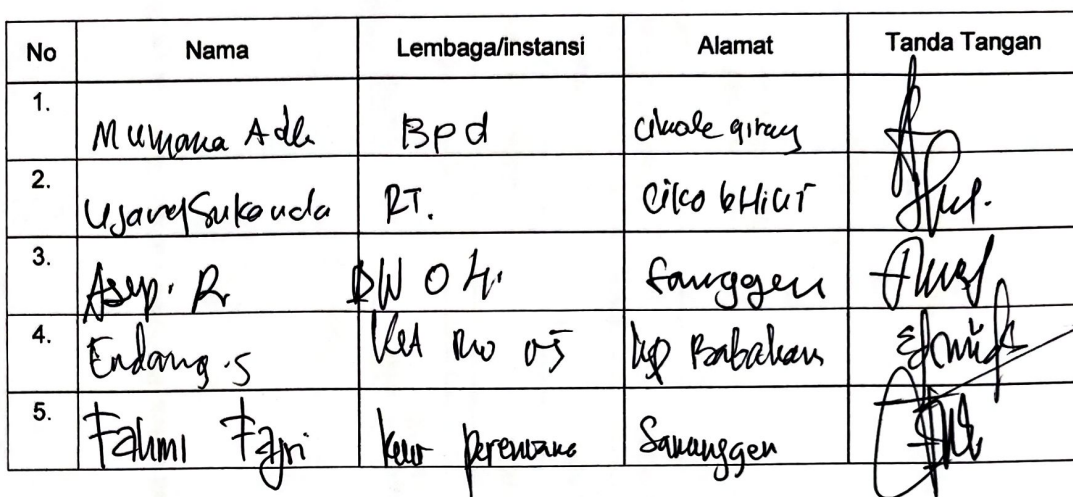 No Nama Lembaga/instansi Alamat Tanda Tangan
1. Mumana Ade Bpd
2. Ujang Sukanda RT.
3. Asep. R RW 04.
4. Endang.s Ket RW 05 kp Babakan
5. Fahmi Fajri kaur perencana Sananggen